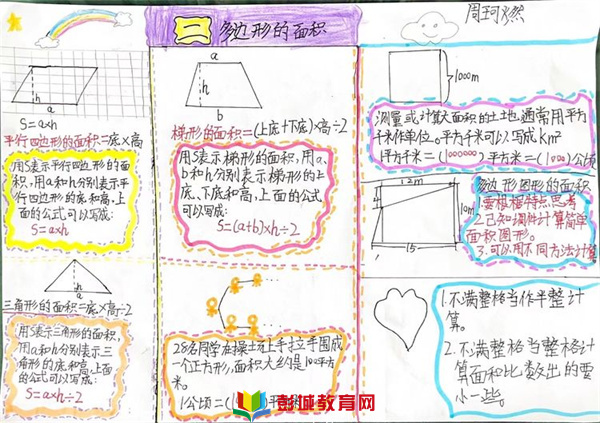 二 多边形的面积
a
h
S=a×h
平行四边形的面积=底×高
用S表示平行四边形的面
积,用a和h分别表示平
行四边形的底和高,上
面的公式可以写成:
S=a×h
h
a
三角形的面积=底×高÷2
用S表示三角形的面积,
用a和h分别表示三
角形的底和高,上面
的公式可以写成:
S=a×h÷2
a
h
b
梯形的面积=(上底+下底)×高÷2
用S表示梯形的面积,用a、
b和h分别表示梯形的上
底、下底和高,上面的公式
可以写成:
S=(a+b)×h÷2
28名同学在操场上手拉手围成
一个正方形,面积大约是100平方
米。
1公顷=(
1000m
测量或计算大面积的土地,通常用平方
千米作单位。平方千米可以写成km²
1平方千米=(1000000)平方米=(1000)公顷
12m
4
10m
15
多边形图形的面积
1.要根据特点思考
2.已知条件计算简单
面积图形。
3.可以用不同方法计算
1.不满整格当作半整计
算。
2.不满整格当整格计
算面积比数出的要
小一些。
彭城教育网